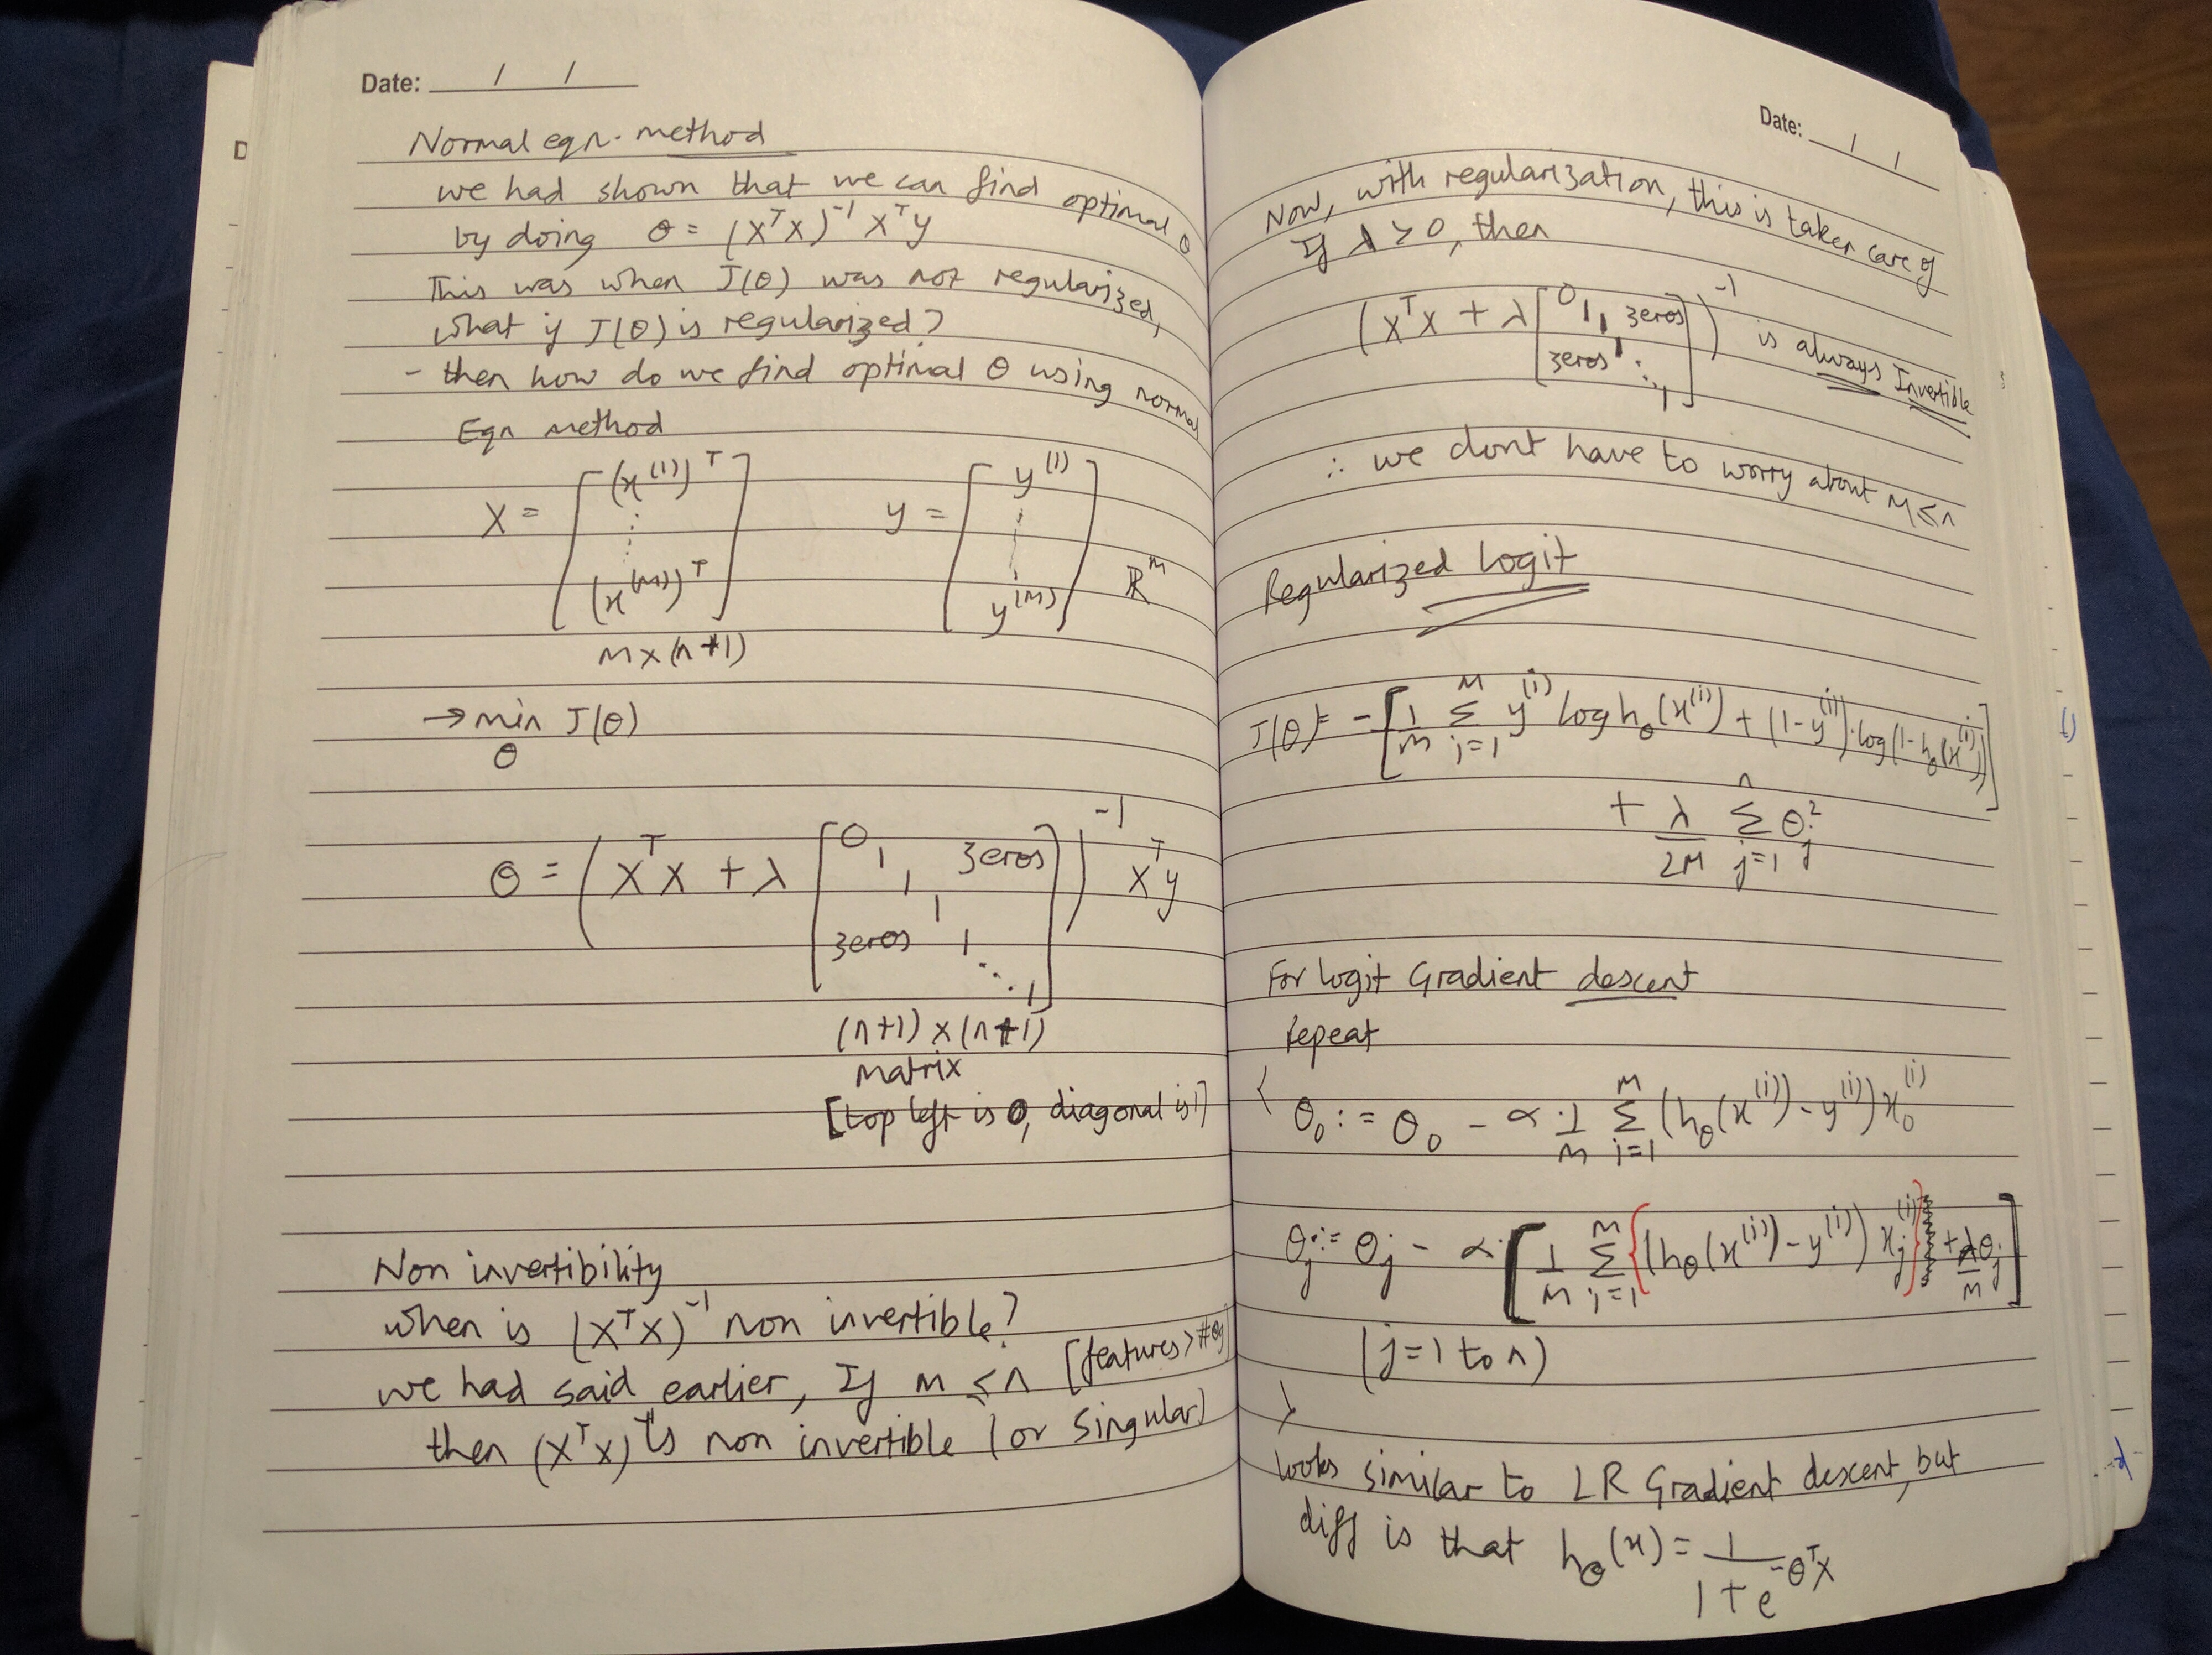 Date: / /
Normal eqn. method
we had shown that we can find optimal θ
by doing θ = (XᵀX)⁻¹ Xᵀy
This was when J(θ) was not regularized,
what if J(θ) is regularized?
- then how do we find optimal θ using normal
Eqn method
X = [ (x⁽¹⁾)ᵀ ⋮ (x⁽ᵐ⁾)ᵀ ] y = [ y⁽¹⁾ ⋮ y⁽ᵐ⁾ ] ℝᵐ
m x (n+1)
→ min J(θ)
θ
θ = (XᵀX + λ [ 0 1 1 1 1 ⋱ 1 zeros zeros ] )⁻¹ Xᵀy
(n+1) x (n+1)
matrix
[top left is 0, diagonal is 1]
Non invertibility
when is (XᵀX)⁻¹ non invertible?
we had said earlier, If m ≤ n [features > #eg]
then (XᵀX)⁻¹ is non invertible (or singular)
Date: / /
Now, with regularization, this is taken care of
If λ > 0, then
(XᵀX + λ [ 0 1 1 1 ⋱ 1 zeros zeros ] )⁻¹ is always Invertible
∴ we dont have to worry about m ≤ n
Regularized Logit
J(θ) = - [ 1/m Σᵢ₌₁ᵐ y⁽ⁱ⁾ log h_θ(x⁽ⁱ⁾) + (1-y⁽ⁱ⁾).log(1-h_θ(x⁽ⁱ⁾)) ]
+ λ/2m Σⱼ₌₁ⁿ θⱼ²
For logit Gradient descent
repeat
{
θ₀ := θ₀ - α 1/m Σᵢ₌₁ᵐ (h_θ(x⁽ⁱ⁾) - y⁽ⁱ⁾) x₀⁽ⁱ⁾
θⱼ := θⱼ - α [ 1/m Σᵢ₌₁ᵐ { (h_θ(x⁽ⁱ⁾) - y⁽ⁱ⁾) xⱼ⁽ⁱ⁾ } + λ/m θⱼ ]
(j=1 to n)
}
looks similar to LR Gradient descent, but
diff is that h_θ(x) = 1/(1 + e^(-θᵀx))